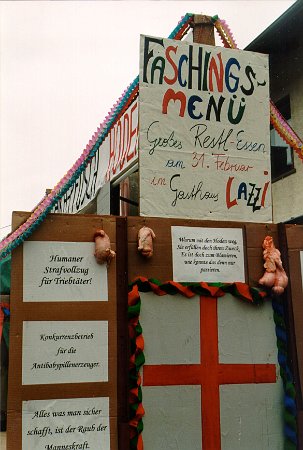 FASCHINGS-
MENÜ
Großes Restl-Essen
am 31. Februar
im Gasthaus
LAZZI
HODE
Humaner
Strafvollzug
für Triebtäter!
Warum mit den Hoden weg,
Sie erfüllen doch ihren Zweck.
Es ist doch zum Blamieren,
wie konnte das denn nur
passieren.
Konkurrenzbetrieb
für die
Antibabypillenerzeuger.
Alles was man sicher
schafft, ist der Raub der
Manneskraft.